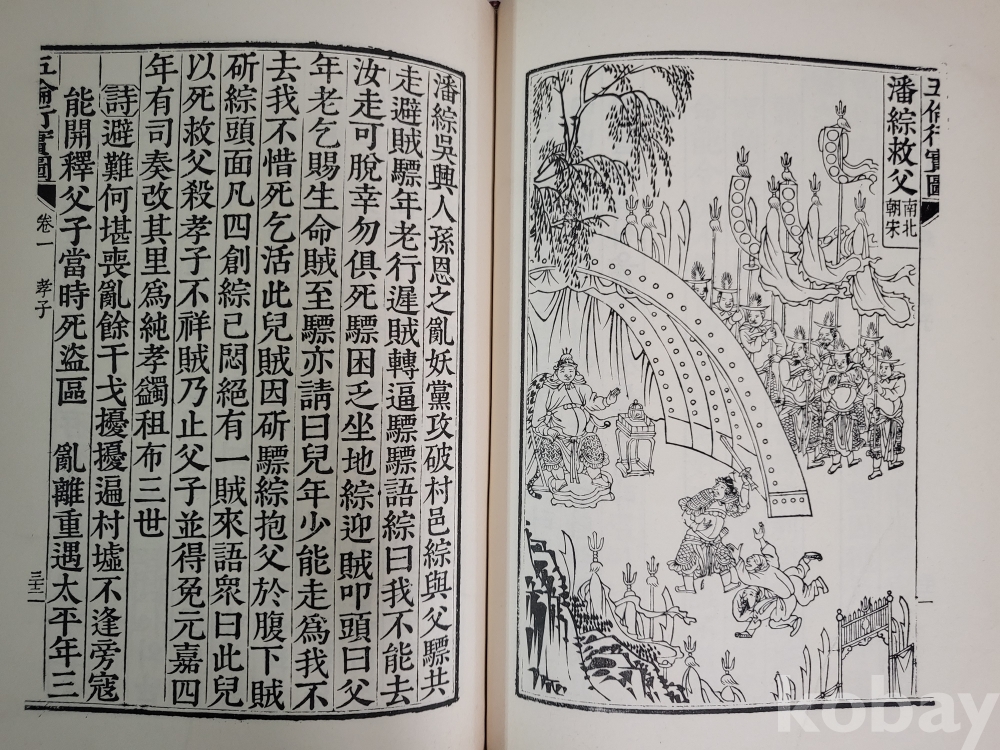 五倫行實圖
潘綜救父
南北
朝宋
潘綜吳興人孫恩之亂妖黨攻破村邑綜與父驃共
走避賊驃年老行遲賊轉逼驃驃語綜曰我不能去
汝走可脫幸勿俱死驃困乏坐地綜迎賊叩頭曰父
年老乞賜生命賊至驃亦請曰兒年少能走爲我不
去我不惜死乞活此兒賊因斫驃綜抱父於腹下賊
斫綜頭面凡四創綜已悶絕有一賊來語眾曰此兒
以死救父殺孝子不祥賊乃止父子並得免元嘉四
年有司奏改其里爲純孝蠲租布三世
詩避難何堪喪亂餘干戈擾擾遍村墟不逢旁寇
能開釋父子當時死盜區 亂離重遇太平年三
五倫行實圖 卷一 孝子 三十二
kobay